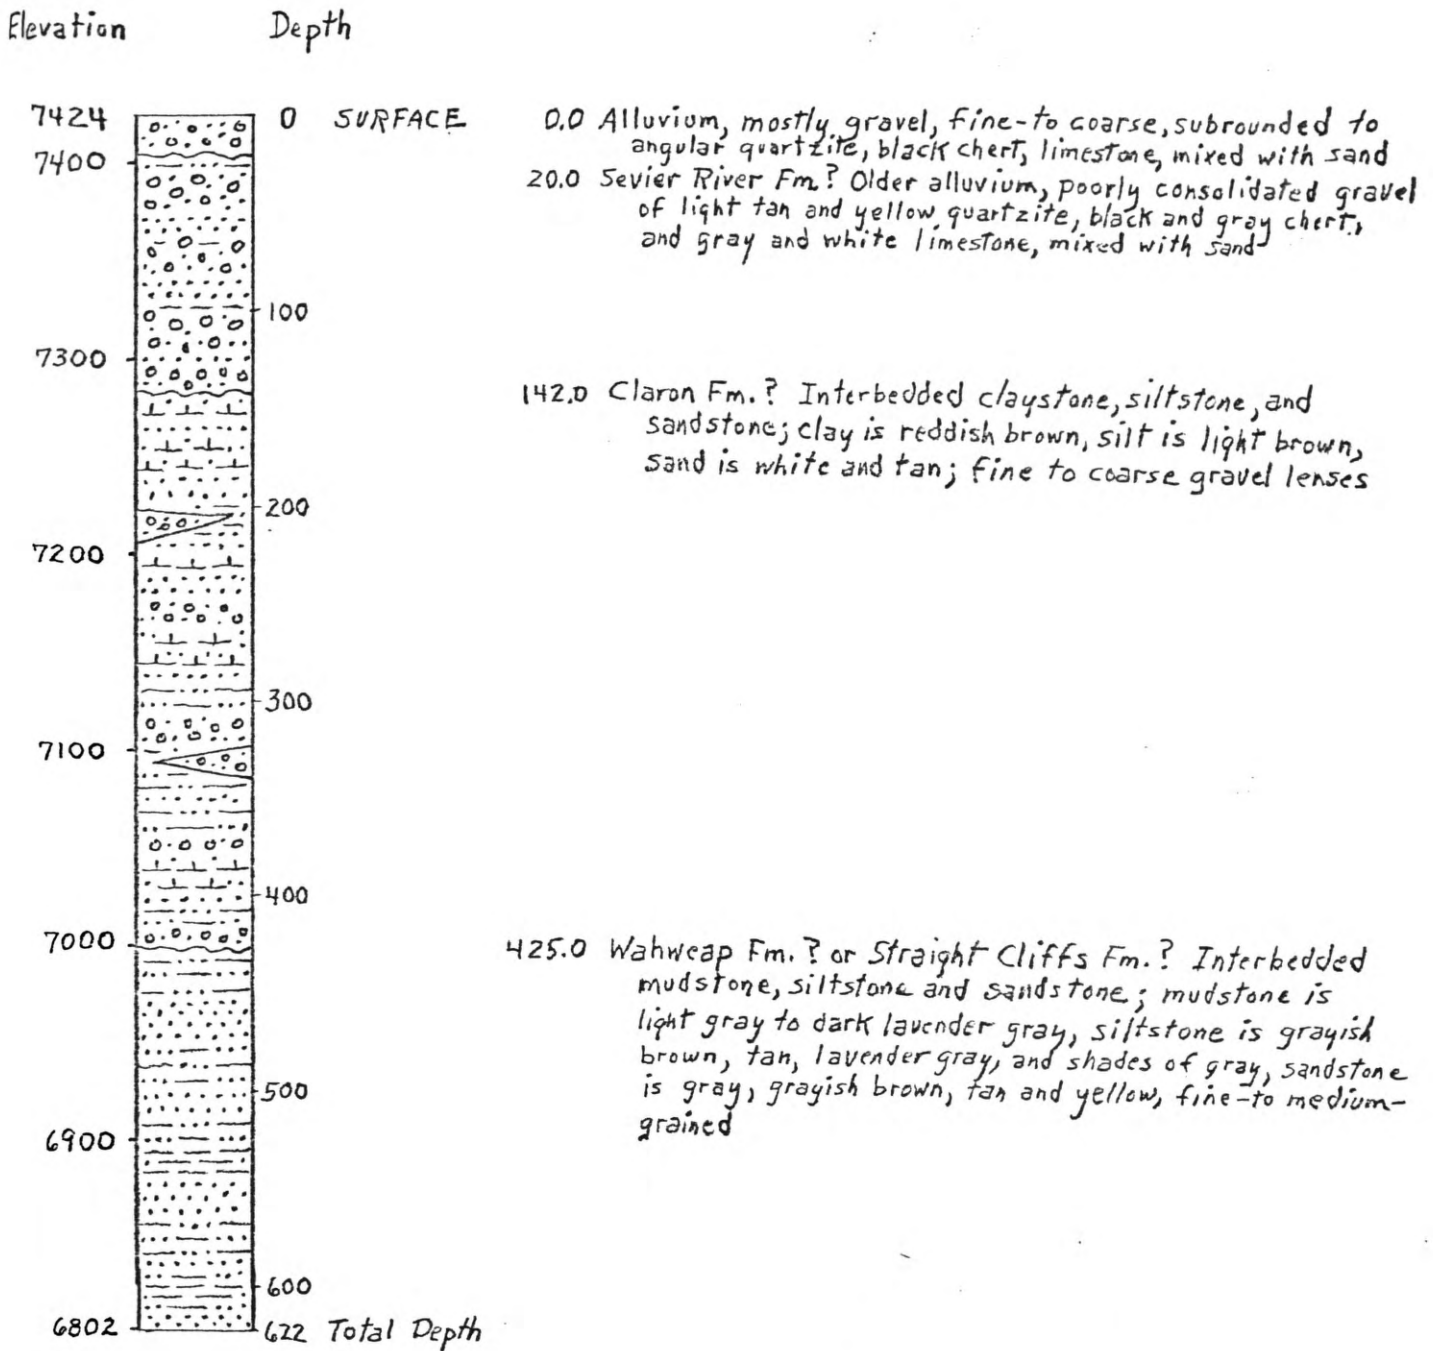 Elevation Depth
7424 0 SURFACE 0.0 Alluvium, mostly gravel, fine-to coarse, subrounded to
angular quartzite, black chert, limestone, mixed with sand
7400
20.0 Sevier River Fm.? Older alluvium, poorly consolidated gravel
of light tan and yellow quartzite, black and gray chert,
and gray and white limestone, mixed with sand
100
7300
142.0 Claron Fm.? Interbedded claystone, siltstone, and
sandstone; clay is reddish brown, silt is light brown,
sand is white and tan; fine to coarse gravel lenses
200
7200
300
7100
400
7000
425.0 Wahweap Fm.? or Straight Cliffs Fm.? Interbedded
mudstone, siltstone and sandstone; mudstone is
light gray to dark lavender gray, siltstone is grayish
brown, tan, lavender gray, and shades of gray, sandstone
is gray, grayish brown, tan and yellow, fine-to medium-
grained
500
6900
600
6802 622 Total Depth